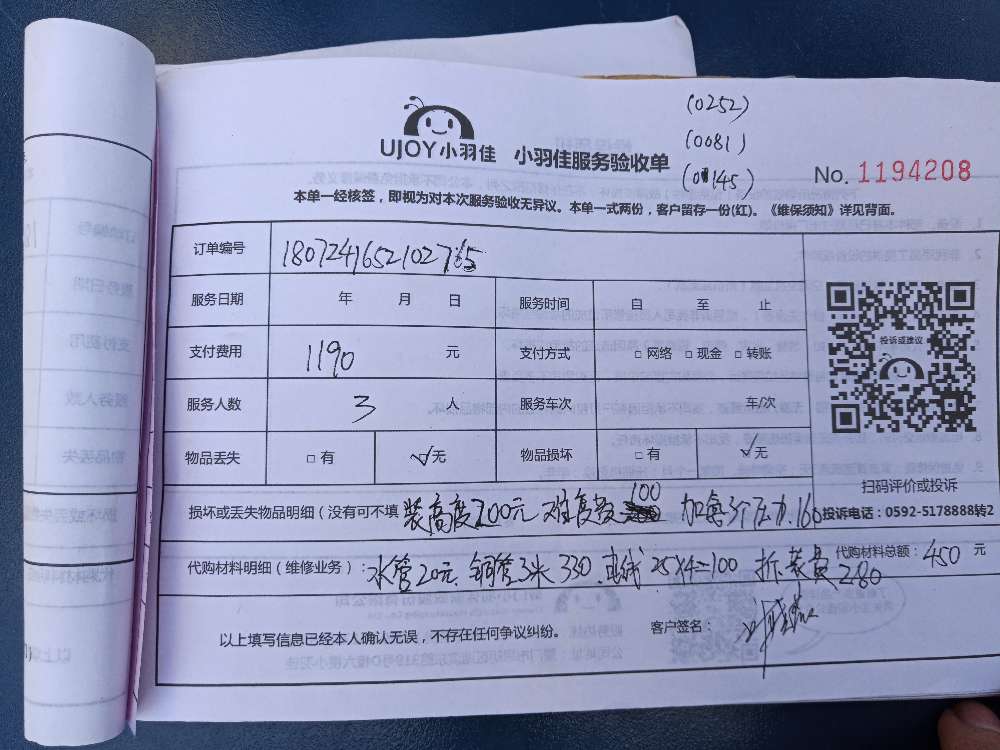 (0252)
(0081)
(0145)
UJOY小羽佳 小羽佳服务验收单
No. 1194208
本单一经核签，即视为对本次服务验收无异议。本单一式两份，客户留存一份(红)。《维保须知》详见背面。
订单编号
服务日期 年 月 日 服务时间 自 至 止
支付费用 1190 元 支付方式 □ 网络 □ 现金 □ 转账
服务人数 3 人 服务车次 车/次
物品丢失 □ 有 √无 物品损坏 □ 有 √无
投诉或建议
扫码评价或投诉
投诉电话：0592-5178888转2
损坏或丢失物品明细（没有可不填 装高度200元 难度费 100 加氟3个压力.160
代购材料明细（维修业务）：水管20元. 铜管3米 330. 电线 25X4=100 拆装费280
代购材料总额：450 元
以上填写信息已经本人确认无误，不存在任何争议纠纷。 客户签名：